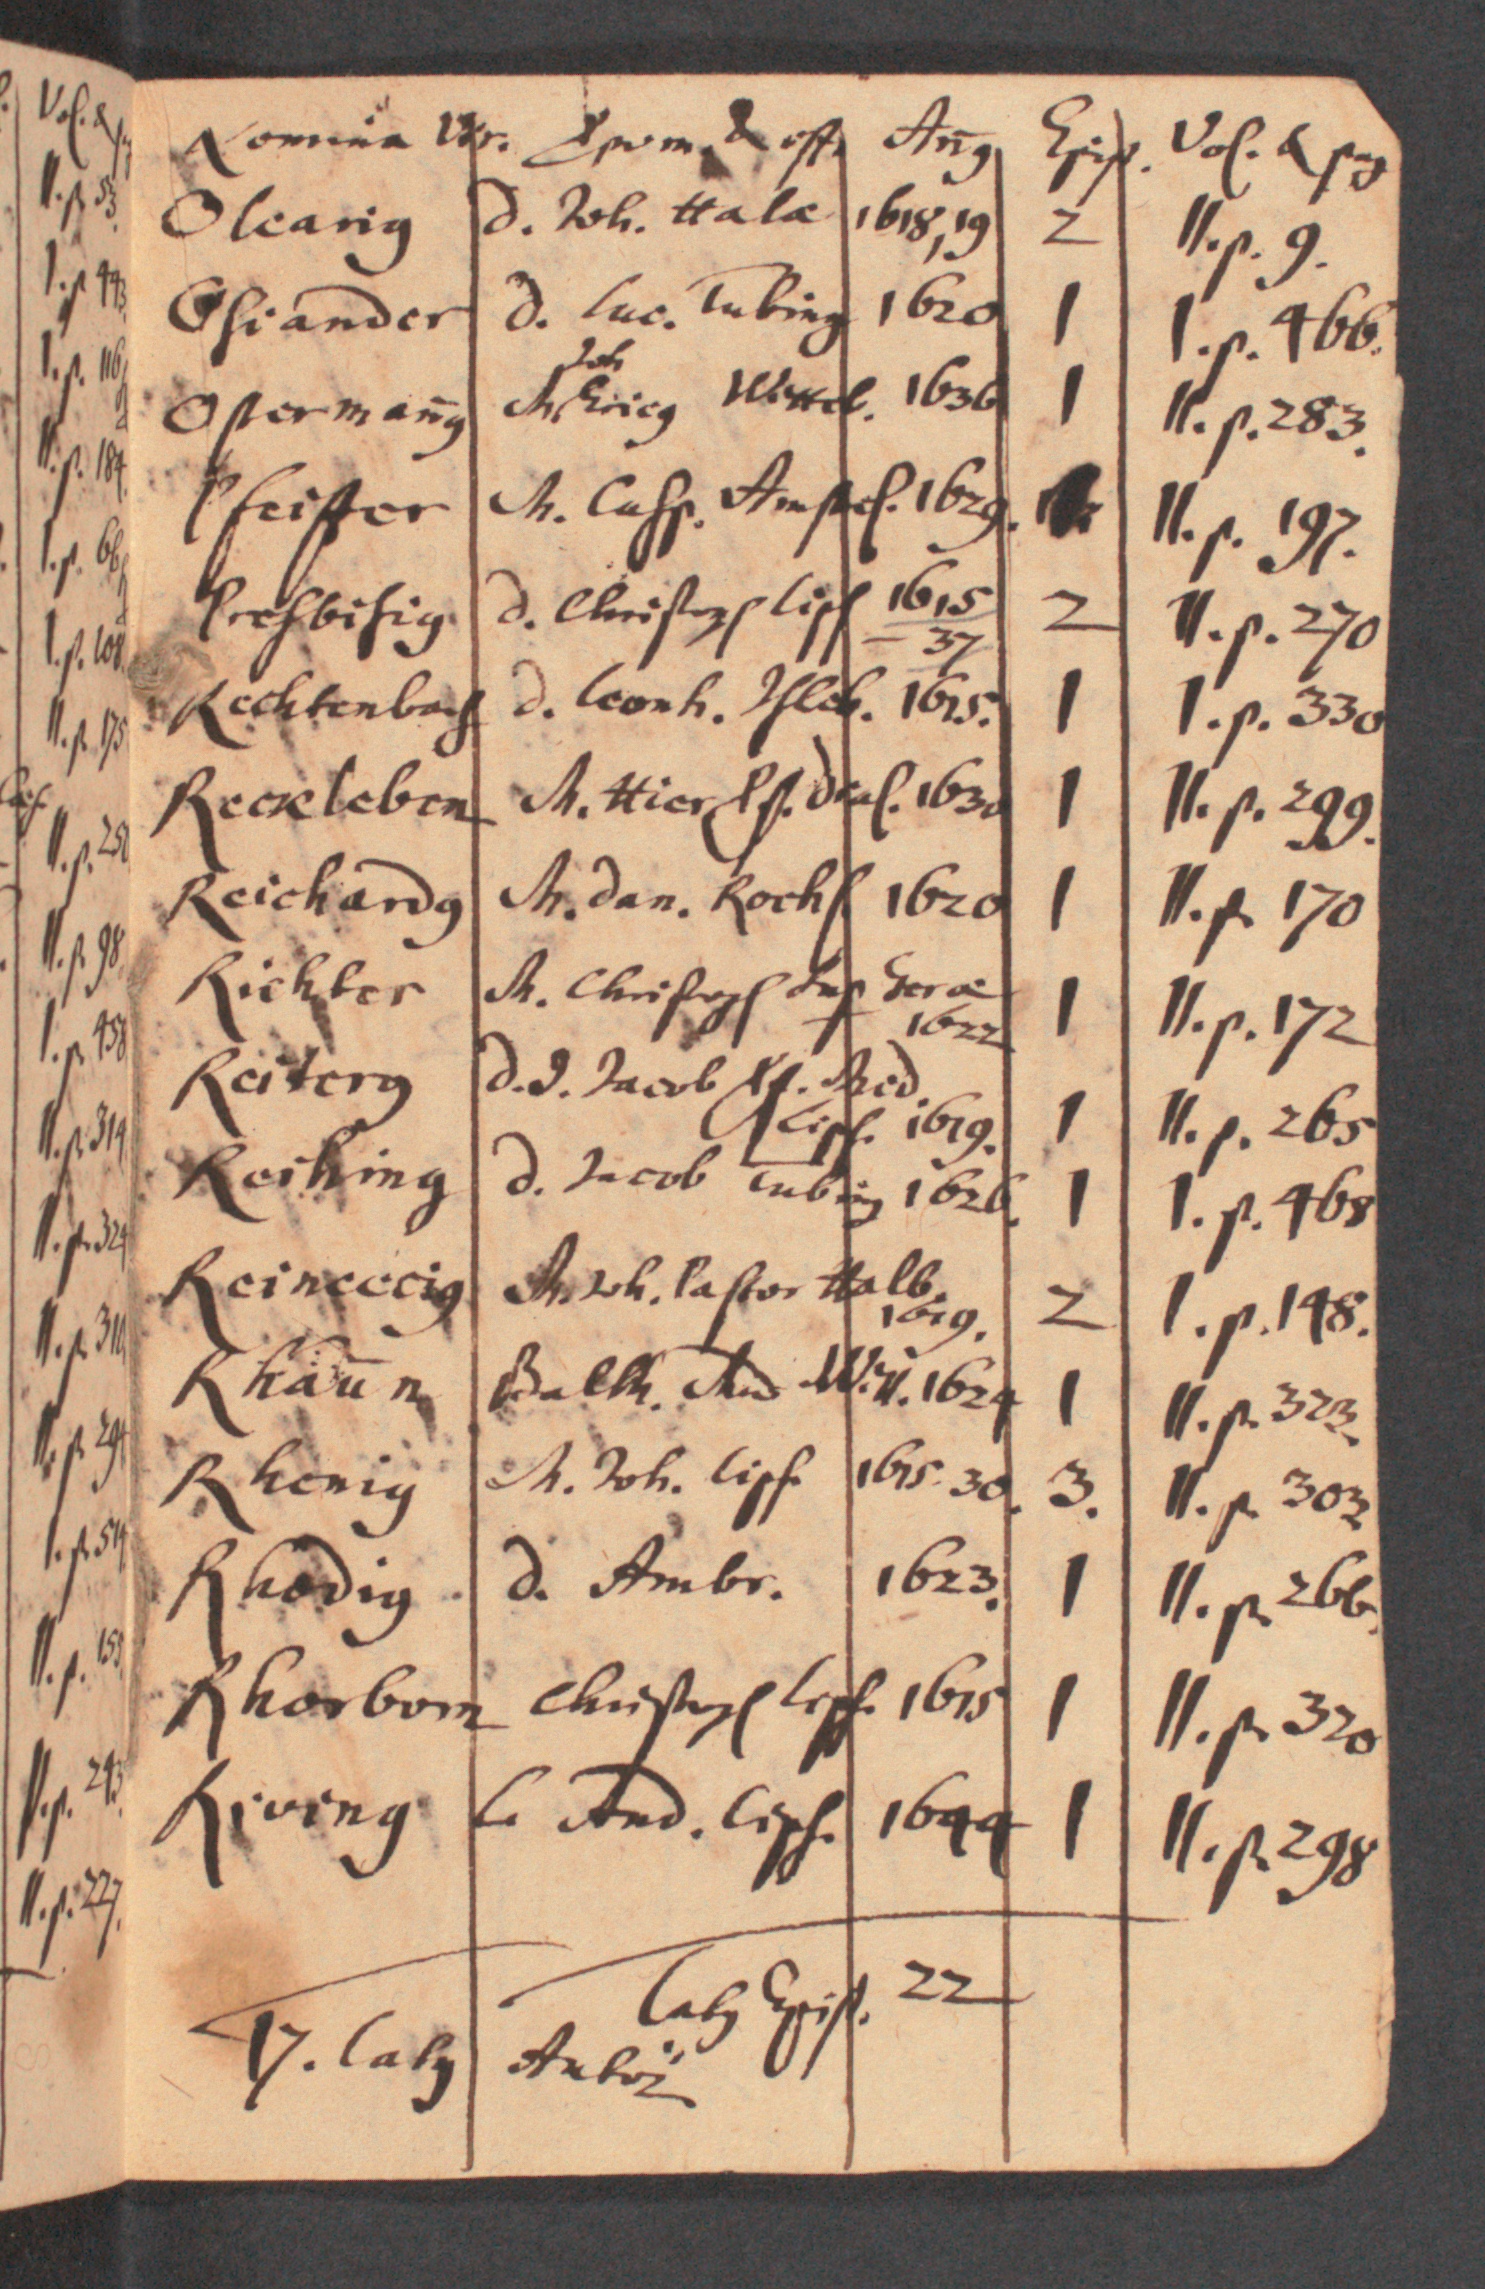 Vol. & p
II. p. 53.
I. p. 443
I. p. 116
II. p. 184.
I. p. 66
I. p. 108
II. p. 175
II. p. 250
II. p. 98.
I. p. 458
II. p. 314
II. p. 324
II. p. 310
II. p. 294
I. p. 514
II. p. 155.
p. 243.
II. p. 227.
Nomina Vir. Prom. & off. Anng Epist. Vol. & pag
Olearig D. Joh. Halæ 1618, 19 2 II. p. 9.
Osiander D. Luc. Tubing 1620 1 I. p. 466.
Joh
Ostermañg M. Erieg Witteb. 1636 1 II. p. 283.
Pfeiffer M. Casp. Amstel. 1629. 1 II. p. 197.
Presbisig D. Christoph Lips 1615 2 II. p. 270
– 37
Rechtenbach D. Leonh. Isleb. 1615. 1 I. p. 330
Reckleben M. Hier. 1630 1 II. p. 299.
Reichardg M. Dan. Rochl 1620 1 II. p. 170
Richter M. Christoph Sup Geræ 1 II. p. 172
1622
Reiterg D. J. Jacob Pf. Med.
Lips. 1619. 1 II. p. 265
Reihing D. Jacob Tubing 1626. 1 I. p. 468
Reineccig M. Joh. Pastor Halb. 2 I. p. 148.
1619.
Khäun Balth. 1624 1 II. p. 323.
Rhenig M. Joh. Lips. 1615. 30. 3. II. p. 303
Rhodig D. Ambr. 1623. 1 II. p. 266.
Rhorborn Christoph Lips. 1615 1 II. p. 320
Riving L. And. Lips. 1644 1 II. p. 298
Latg Epist. 22
17. Latg